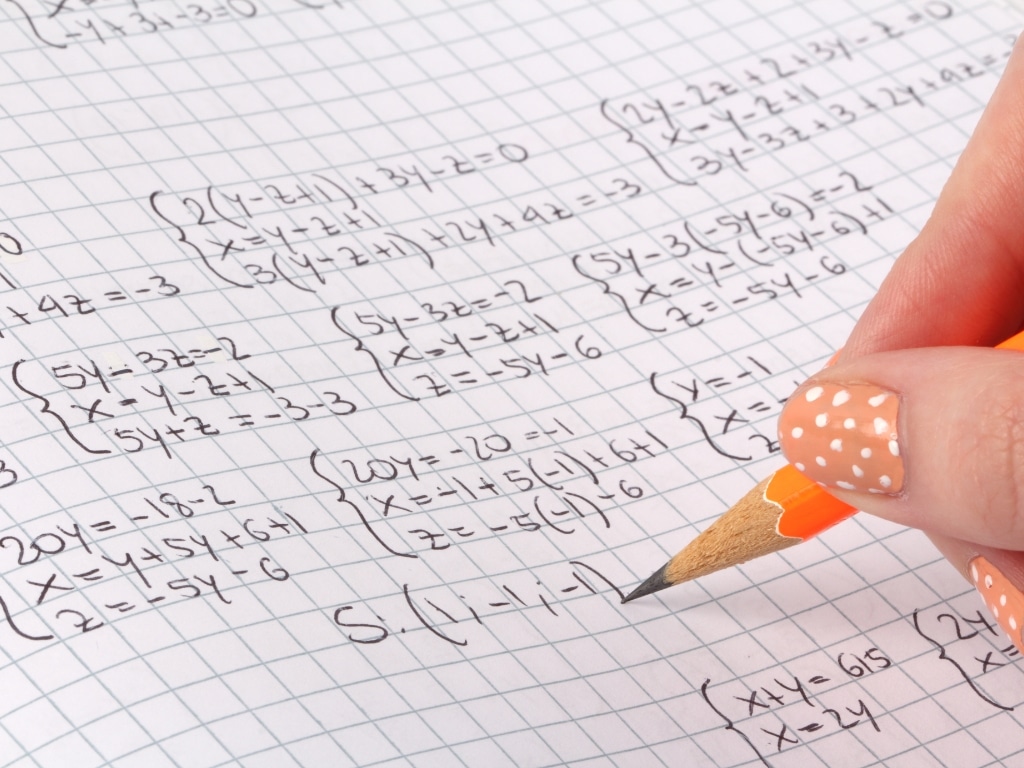 -y+3+-3=0
2y-2z+2+3y-z=0
x=y-z+1
3y-3z+3+2y+4z=
2(y-z+1)+3y-z=0
x=y-z+1
3(y-z+1)+2y+4z=-3
0
+4z=-3
5y-3(-5y-6)=-2
x=y-(-5y-6)+1
z=-5y-6
5y-3z=-2
x=y-z+1
z=-5y-6
5y-3z=-2
x=y-z+1
5y+z=-3-3
3
y=-1
x=
z
20y=-20=-1
x=-1+5(-1)+6+1
z=-5(-1)-6
20y=-18-2
x=y+5y+6+1
z=-5y-6
S.(1;-1;-1)
x+y=615
x=2y
2y
x=